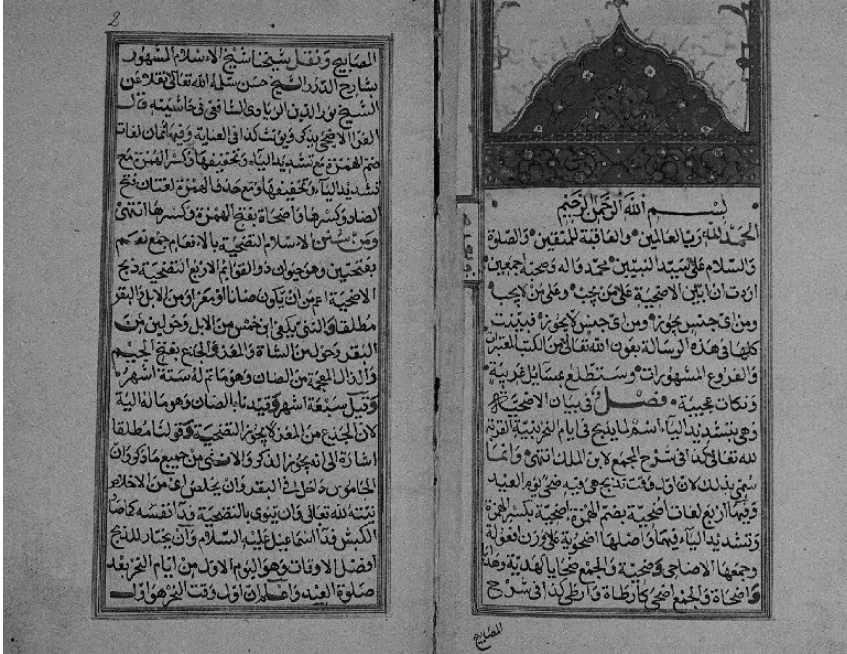 بسم الله الرحمن الرحيم
الحمد لله رب العالمين والعاقبة للمتقين والصلوة
والسلام على سيد النبيين محمد واله وصحبه اجمعين
اردت ان ابين الاضحية على من يجب وعلى من لا يجب
ومن اى جنس يجوز ومن اى جنس لا يجوز فبينت
كلها فى هذه الرسالة بعون الله تعالى من الكتب المعتبرات
والفروع المشهورات وستطلع بمسايل غريبة
ونكات عجيبة فصل فى بيان الاضحية
وهى بتشديد الياء اسم لما يذبح فى ايام النحر بنية القربة
لله تعالى كذا فى شرح المجمع لابن الملك انتهى وانما
سمى بذلك لان اول وقت تذبح هى فيه ضحى يوم العيد
وفيها اربع لغات اضحية بضم الهمزة واضحية بكسر الهمزة
وتشديد الياء فيهما واصلها اضحوية على وزن افعولة
وجمعها الاضاحى وضحية والجمع ضحايا كهدية وهدايا
واضحاة والجمع اضحى كارطاة وارطى كذا فى شرح
المصابيح
2
المصابيح ونقل شيخنا شيخ الاسلام المشهور
بشارح الدرر الشيخ حسن سلمه الله تعالى نقلا عن
الشيخ نور الدين الزيادى الشافعى فى حاشيته قال
الفرا الاضحى يذكر ويؤنث كذا فى العناية وفيها ثمان لغات
ضم الهمزة مع تشديد الياء وتخفيفها وكسر الهمزة مع
تشديد الياء وتخفيفها ومع حذف الهمزة لغتان فتح
الضاد وكسرها واضحاة بفتح الهمزة وكسرها انتهى
ومن سنن الاسلام التضحية بالانعام جمع نعم
بفتحتين وهو حيوان ذو القوائم الاربع التضحية ذبح
الاضحية اعم من ان يكون ضانا او معزا ومن الابل والبقر
مطلقا والثنى يكفى ابن خمس من الابل وحولين من
البقر وحول من الشاة والمعز وفى الجذع بفتح الجيم
والذال المعجمة من الضان وهو ما تم له ستة اشهر
وقيل سبعة اشهر وقيدنا بالضان وهو ما له الية
لان الجذع من المعز لا يجوز التضحية وقولنا مطلقا
اشارة الى انه يجوز الذكر والانثى من جميع ما ذكر وان
الجاموس داخل فى البقر وان يخلص اى من الاخلاص
نيته لله تعالى وان ينوى بالتضحية فدا نفسه كما صار
الكبش فدا اسماعيل عليه السلام وان يختار للذبح
افضل الاوقات وهو اليوم الاول من ايام النحر بعد
صلوة العيد واعلم ان اول وقت النحر هو اول